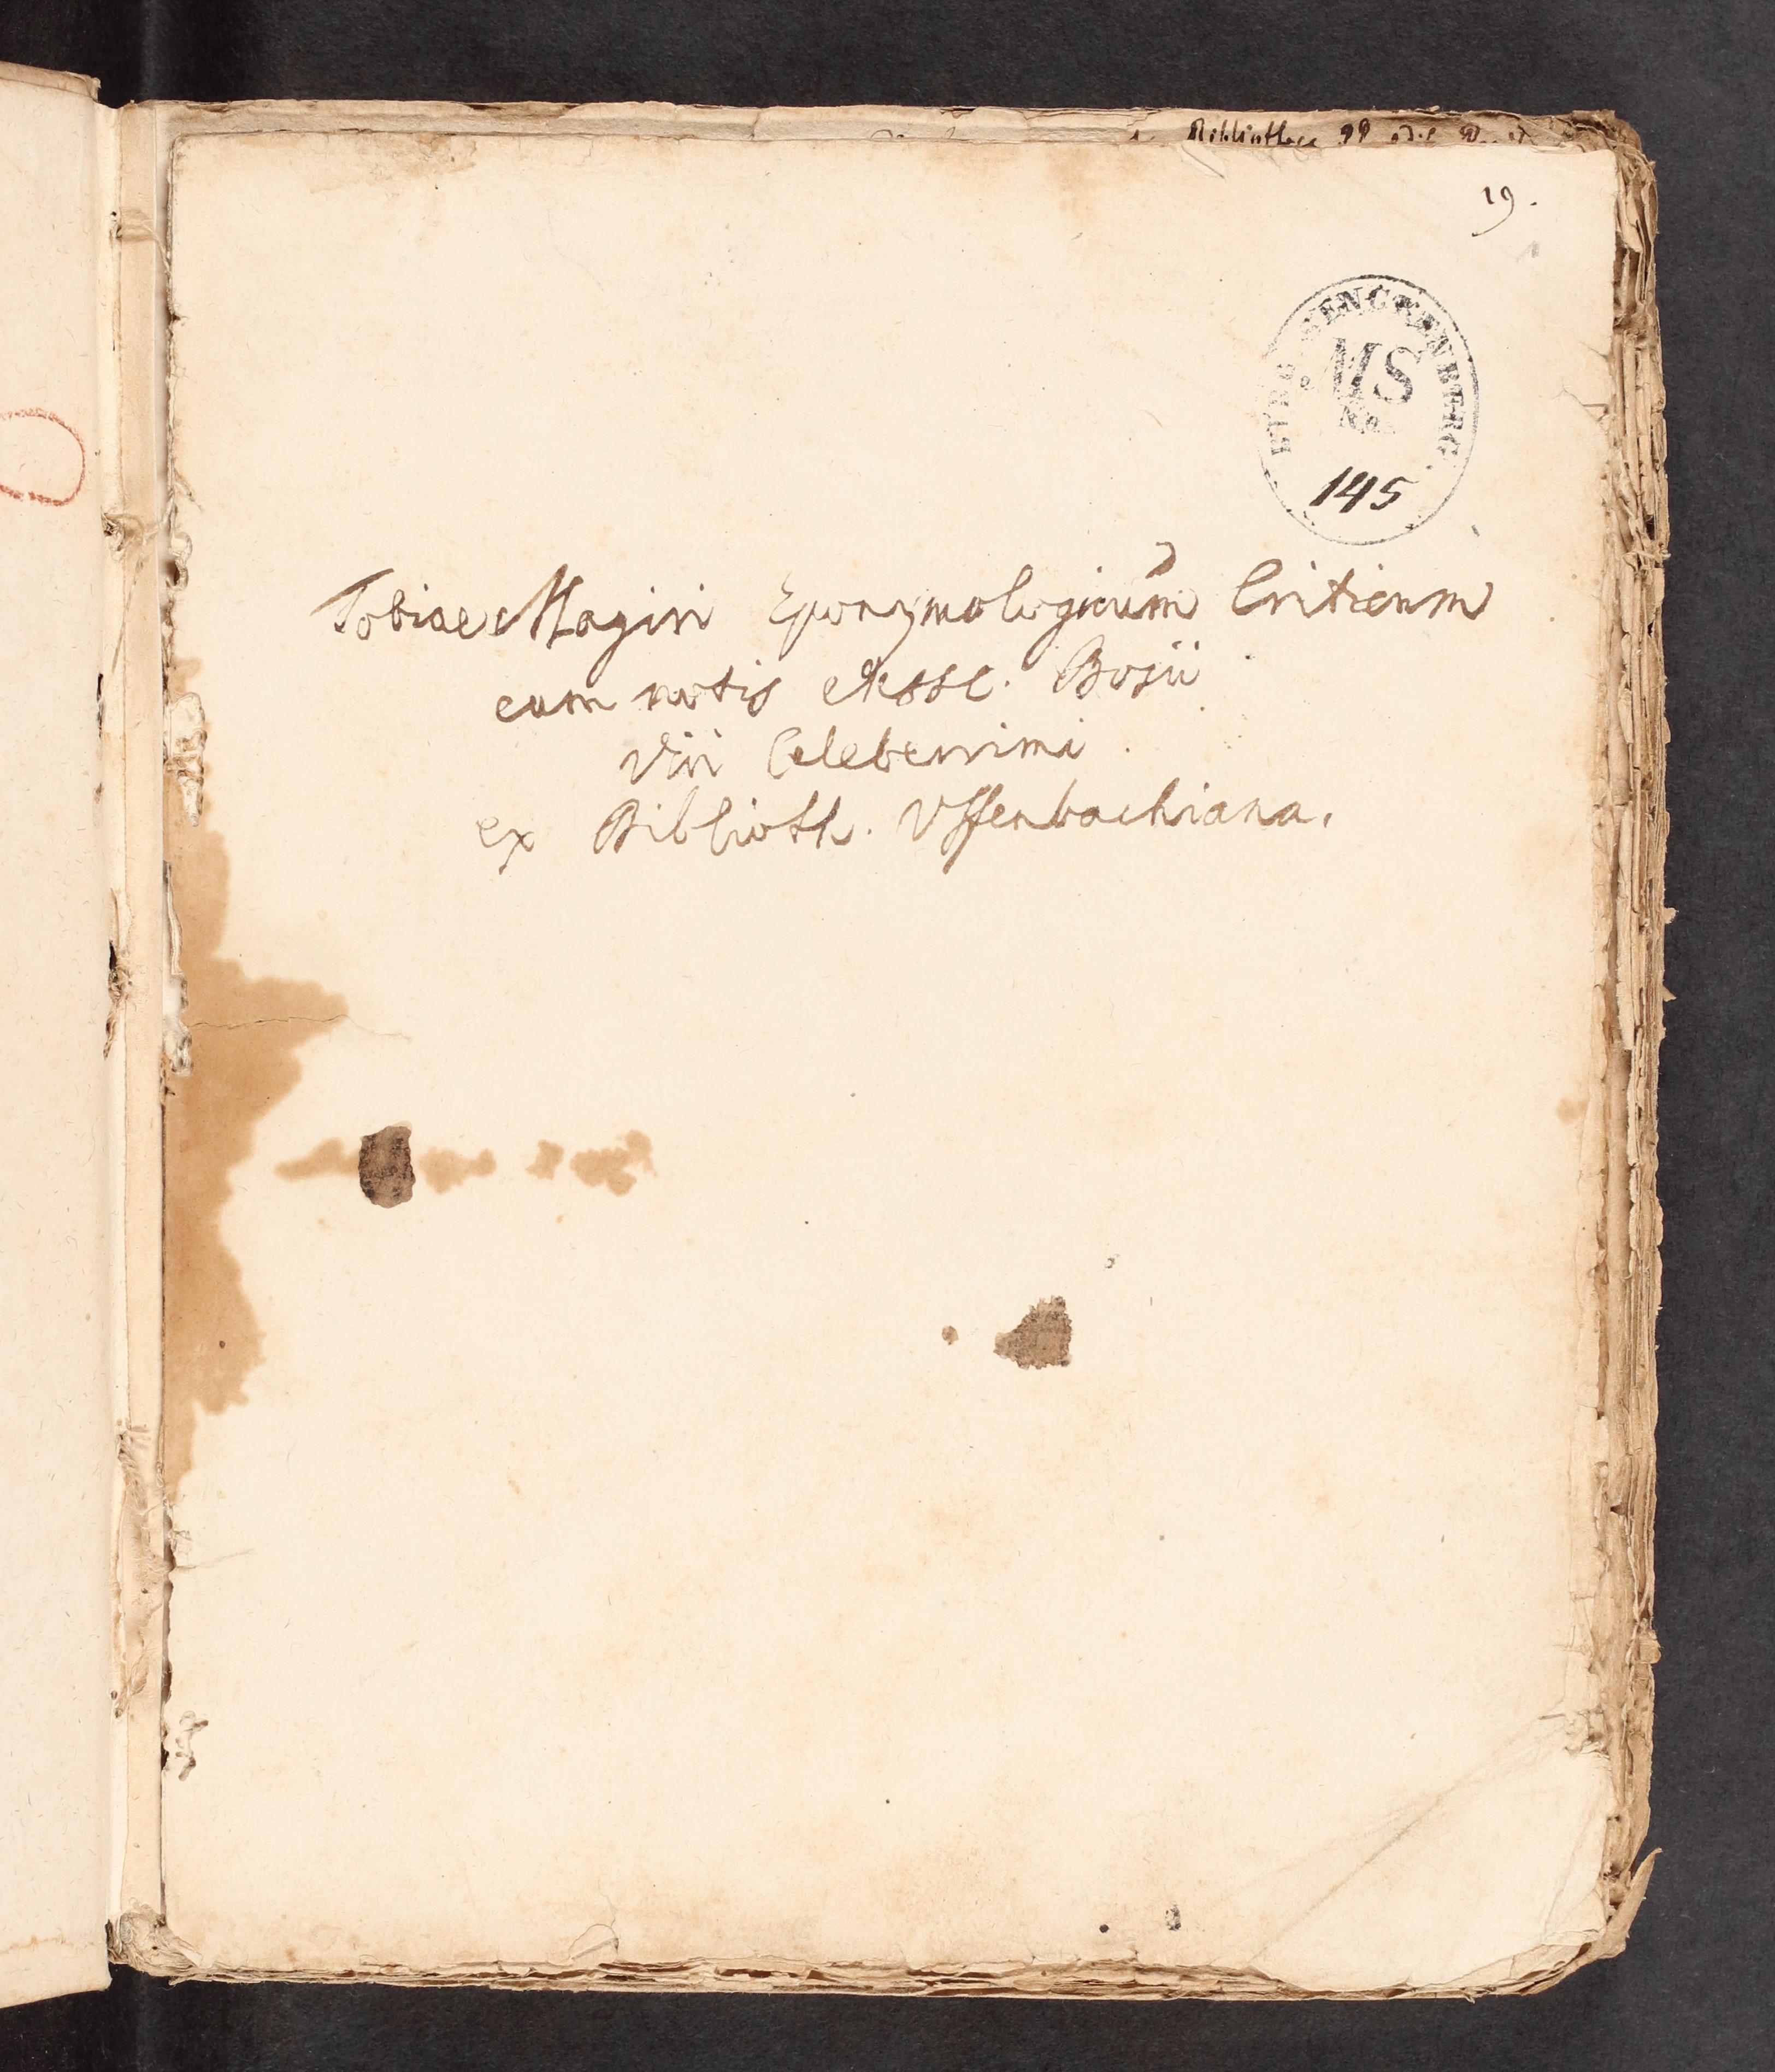 Bibliotheca
19.
BIBL. SENCKENBERG.
MS
No.
145
Tobiae Magiri Eponymologicum Criticum
cum notis Mssc. Bosii
Viri Celeberrimi.
ex Biblioth. Uffenbachiana.